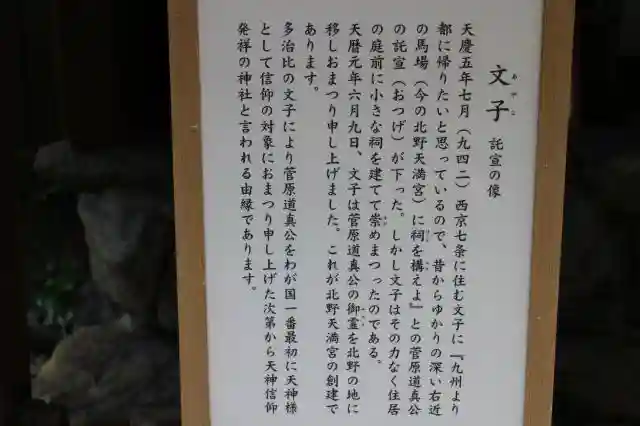 文子 託宣の像
天慶五年七月（九四二）西京七条に住む文子に『九州より
都に帰りたいと思っているので、昔からゆかりの深い右近
の馬場（今の北野天満宮）に祠を構えよ』との菅原道真公
の託宣（おつげ）が下った。しかし文子はその力なく住居
の庭前に小さな祠を建てて崇めまつったのである。
天暦元年六月九日、文子は菅原道真公の御霊を北野の地に
移しおまつり申し上げました。これが北野天満宮の創建で
あります。
多治比の文子により菅原道真公をわが国一番最初に天神様
として信仰の対象におまつり申し上げた次第から天神信仰
発祥の神社と言われる由縁であります。